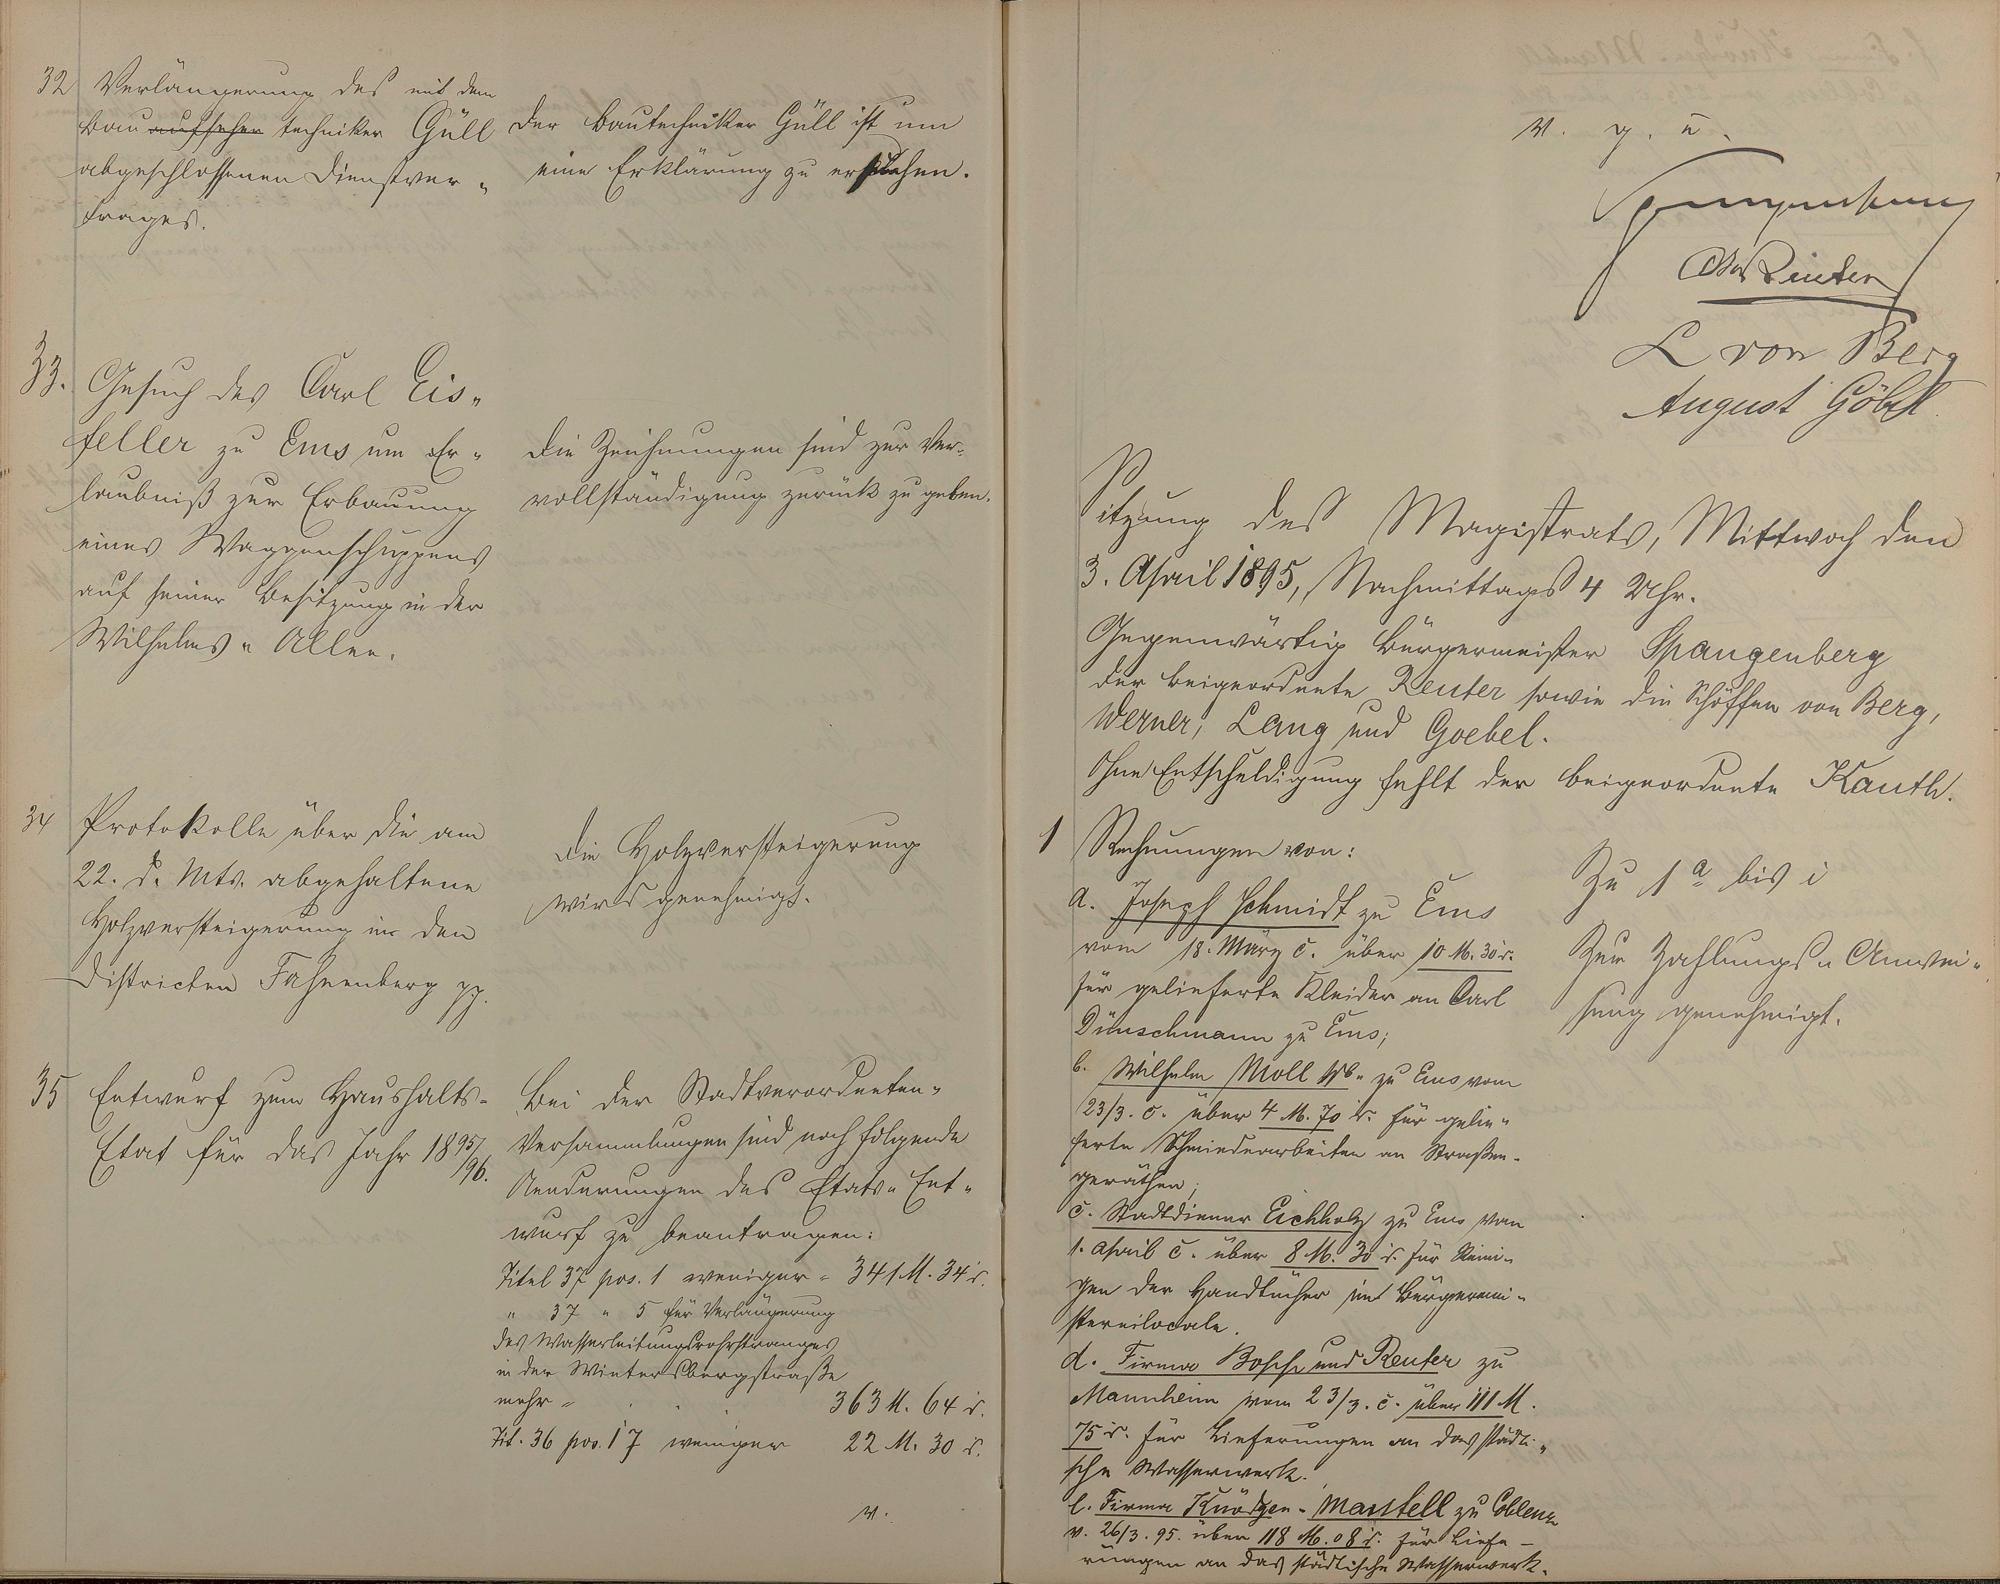 32 Verlängerung des mit dem
Bauaufseher techniker Güll
abgeschlossenen Dienstver-
trages.
Der Bautechniker Güll ist um
eine Erklärung zu ersuchen.
33. Gesuch des Carl Eis-
feller zu Ems um Er-
laubniß zur Erbauung
eines Waggenschuppens
auf seiner Besitzung in der
Wilhelms-Allee.
Die Zeichnungen sind zur Ver-
vollständigung zurück zu geben.
34 Protokolle über die am
22. d. Mts. abgehaltene
Holzversteigerung in den
Districten Fahnenberg pp.
Die Holzversteigerung
wird genehmigt.
35 Entwurf zum Haushalts-
Etat für das Jahr 1895/96.
Bei der Stadtverordneten-
Versammlungen sind noch folgende
Aenderungen des Etats-Ent-
wurf zu beantragen:
Titel 37 pos. 1 weniger = 341 M. 34 d.
" 37 " 5 für Verlängerung
des Wasserleitungsrohrstranges
in der Wintersbergstraße
mehr = 363 M. 64 d.
Tit. 36 pos. 17 weniger 22 M. 30 d.
v.
v. g. u.
Spangenberg
Reuter
L von Berg
August Göbel
Sitzung des Magistrats, Mittwoch den
3. April 1895, Nachmittags 4 Uhr.
Gegenwärtig Bürgermeister Spangenberg
der Beigeordnete Reuter sowie die Schöffen von Berg,
Werner, Lang und Goebel.
Ohne Entschuldigung fehlt der Beigeordnete Kauth.
1 Rechnungen von:
a. Joseph Schmidt zu Ems
vom 18. März c. über 10 M. 30 d.
für gelieferte Kleider an Carl
Dünschmann zu Ems;
b. Wilhelm Moll Wb. zu Ems vom
23/3. c. über 4 M. 70 d. für gelie-
ferte Schmiedearbeiten an Straßen-
geräthen;
c. Stadtdiener Eichholz zu Ems vom
1. April c. über 8 M. 30 d. für Reini-
gen der Handtücher im Bürgermei-
stereilocale.
d. Firma Bopp und Reuter zu
Mannheim vom 23/3. c. über 111 M.
75 d. für Lieferungen an das städti-
sche Wasserwerk.
e. Firma Knödgen-Mantell zu Coblenz
v. 26/3. 95. über 118 M. 08 d. für Liefe-
rungen an das städtische Wasserwerk.
Zu 1 a bis i
Zur Zahlungs-Anwei-
sung genehmigt.